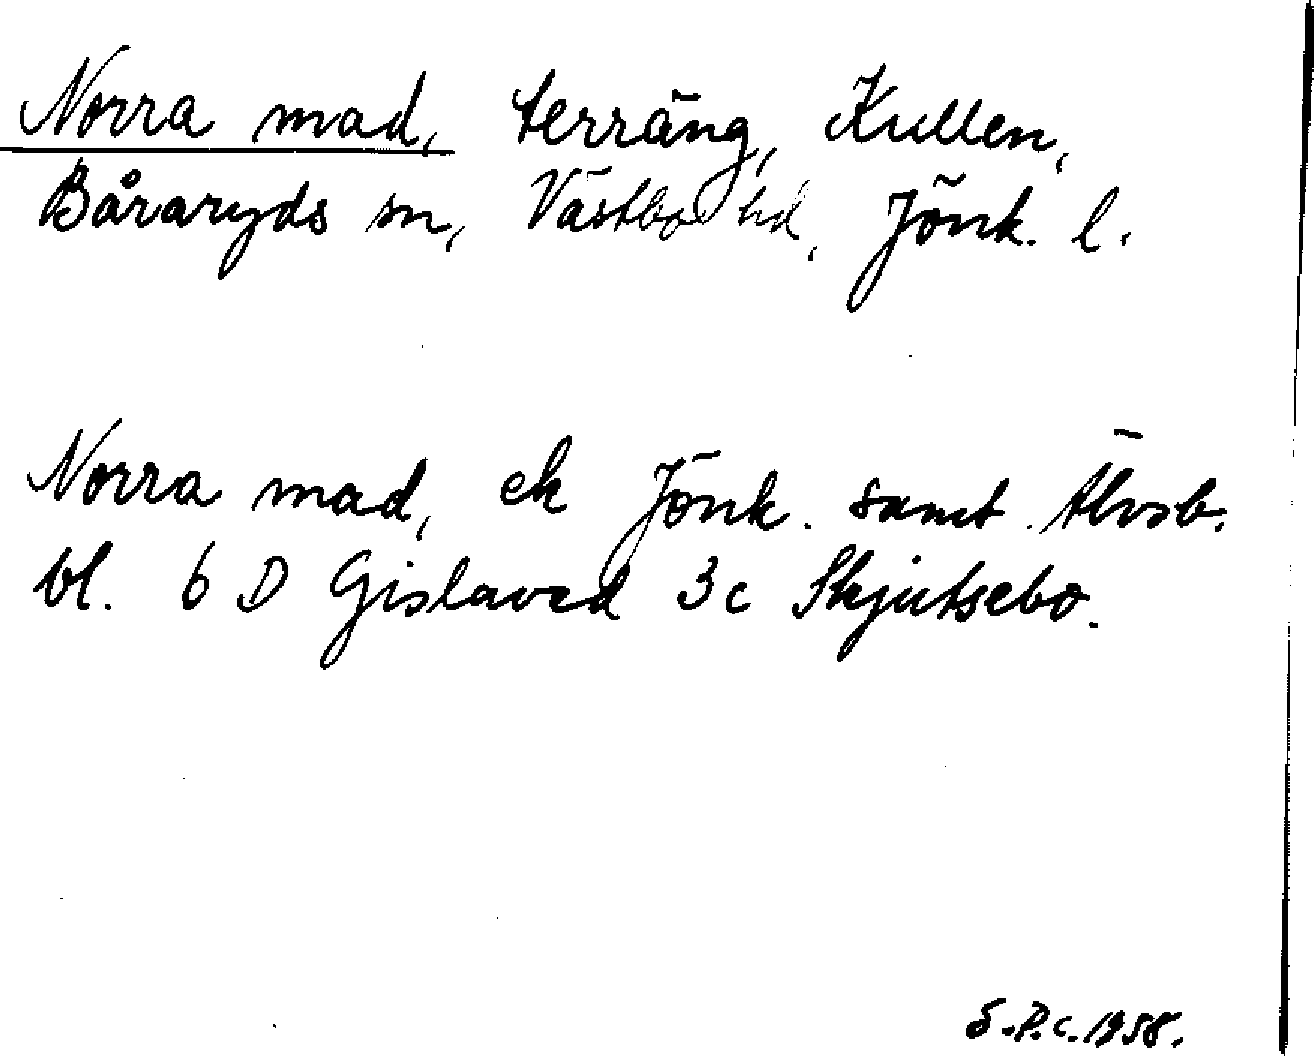 Norra mad, terräng, Kullen,
Båraryds sn, Västbo hd, Jönk. l.
Norra mad, ek Jönk. samt Älvsb.
bl. 6 D Gislaved 3c Skjutsebo.
S.P.C. 1958.